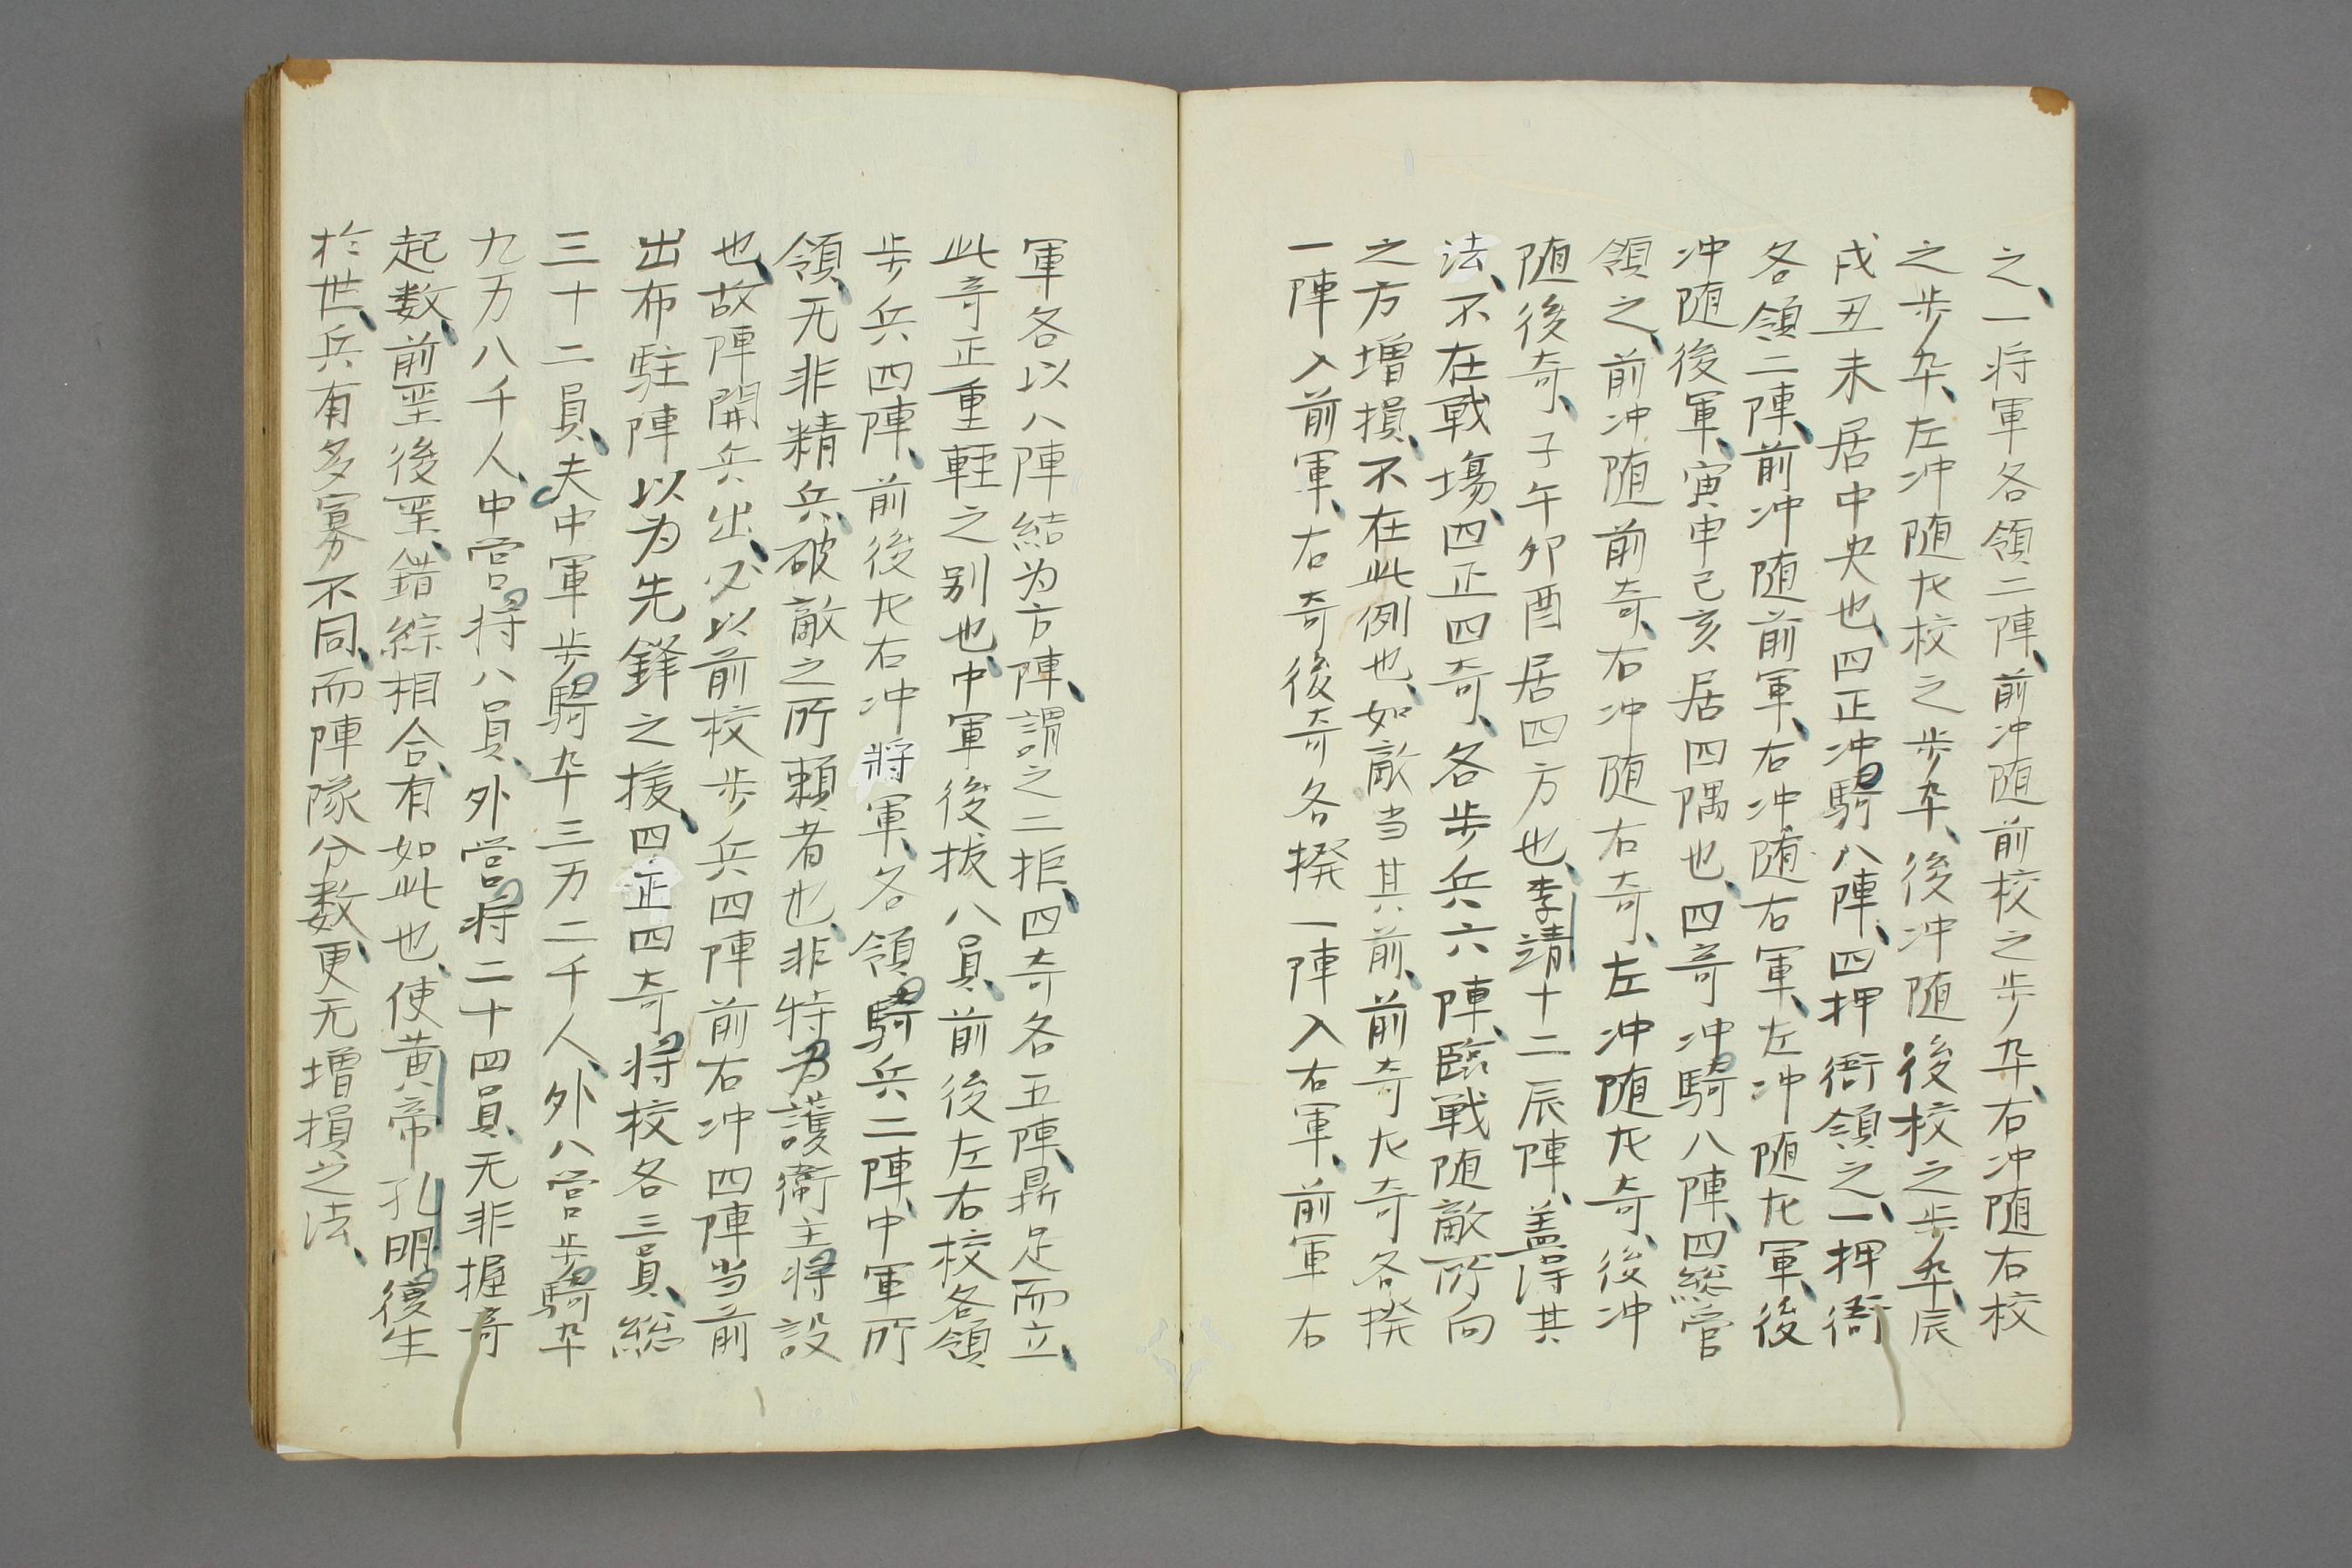 之、一将軍各領二陣、前冲随前校之步卒、右冲随右校
之步卒、左冲随左校之步卒、後冲随後校之步卒、辰
戌丑未居中央也、四正冲騎八陣、四押衙領之、一押衙
各領二陣、前冲随前軍、右冲随右軍、左冲随左軍、後
冲随後軍、寅申己亥居四隅也、四奇冲騎八陣、四総管
領之、前冲随前奇、右冲随右奇、左冲随左奇、後冲
随後奇、子午卯酉居四方也、李靖十二辰陣、盖得其
法、不在戦場、四正四奇、各步兵六陣、臨戦随敵所向
之方増損、不在此例也、如敵当其前、前奇左奇各撥
一陣入前軍、右奇後奇各撥一陣入右軍、前軍右
軍各以八陣結为方陣、謂之二拒、四奇各五陣、鼎足而立、
此奇正重軽之别也、中軍後抜八員、前後左右校各領
步兵四陣、前後左右冲將軍、各領騎兵二陣、中軍所
領、无非精兵、破敵之所頼者也、非特为護衛主将設
也、故陣開兵出、必以前校步兵四陣前右冲四陣当前
出布駐陣以为先鋒之援、四正四奇、将校各三員、総
三十二員、夫中軍步騎卒三万二千人、外八営步騎卒
九万八千人、中営将八員、外営将二十四員、无非握奇
起数、前垩後垩、錯綜相合、有如此也、使黄帝孔明復生
於世、兵有多寡不同、而陣隊分数、更无増損之法、